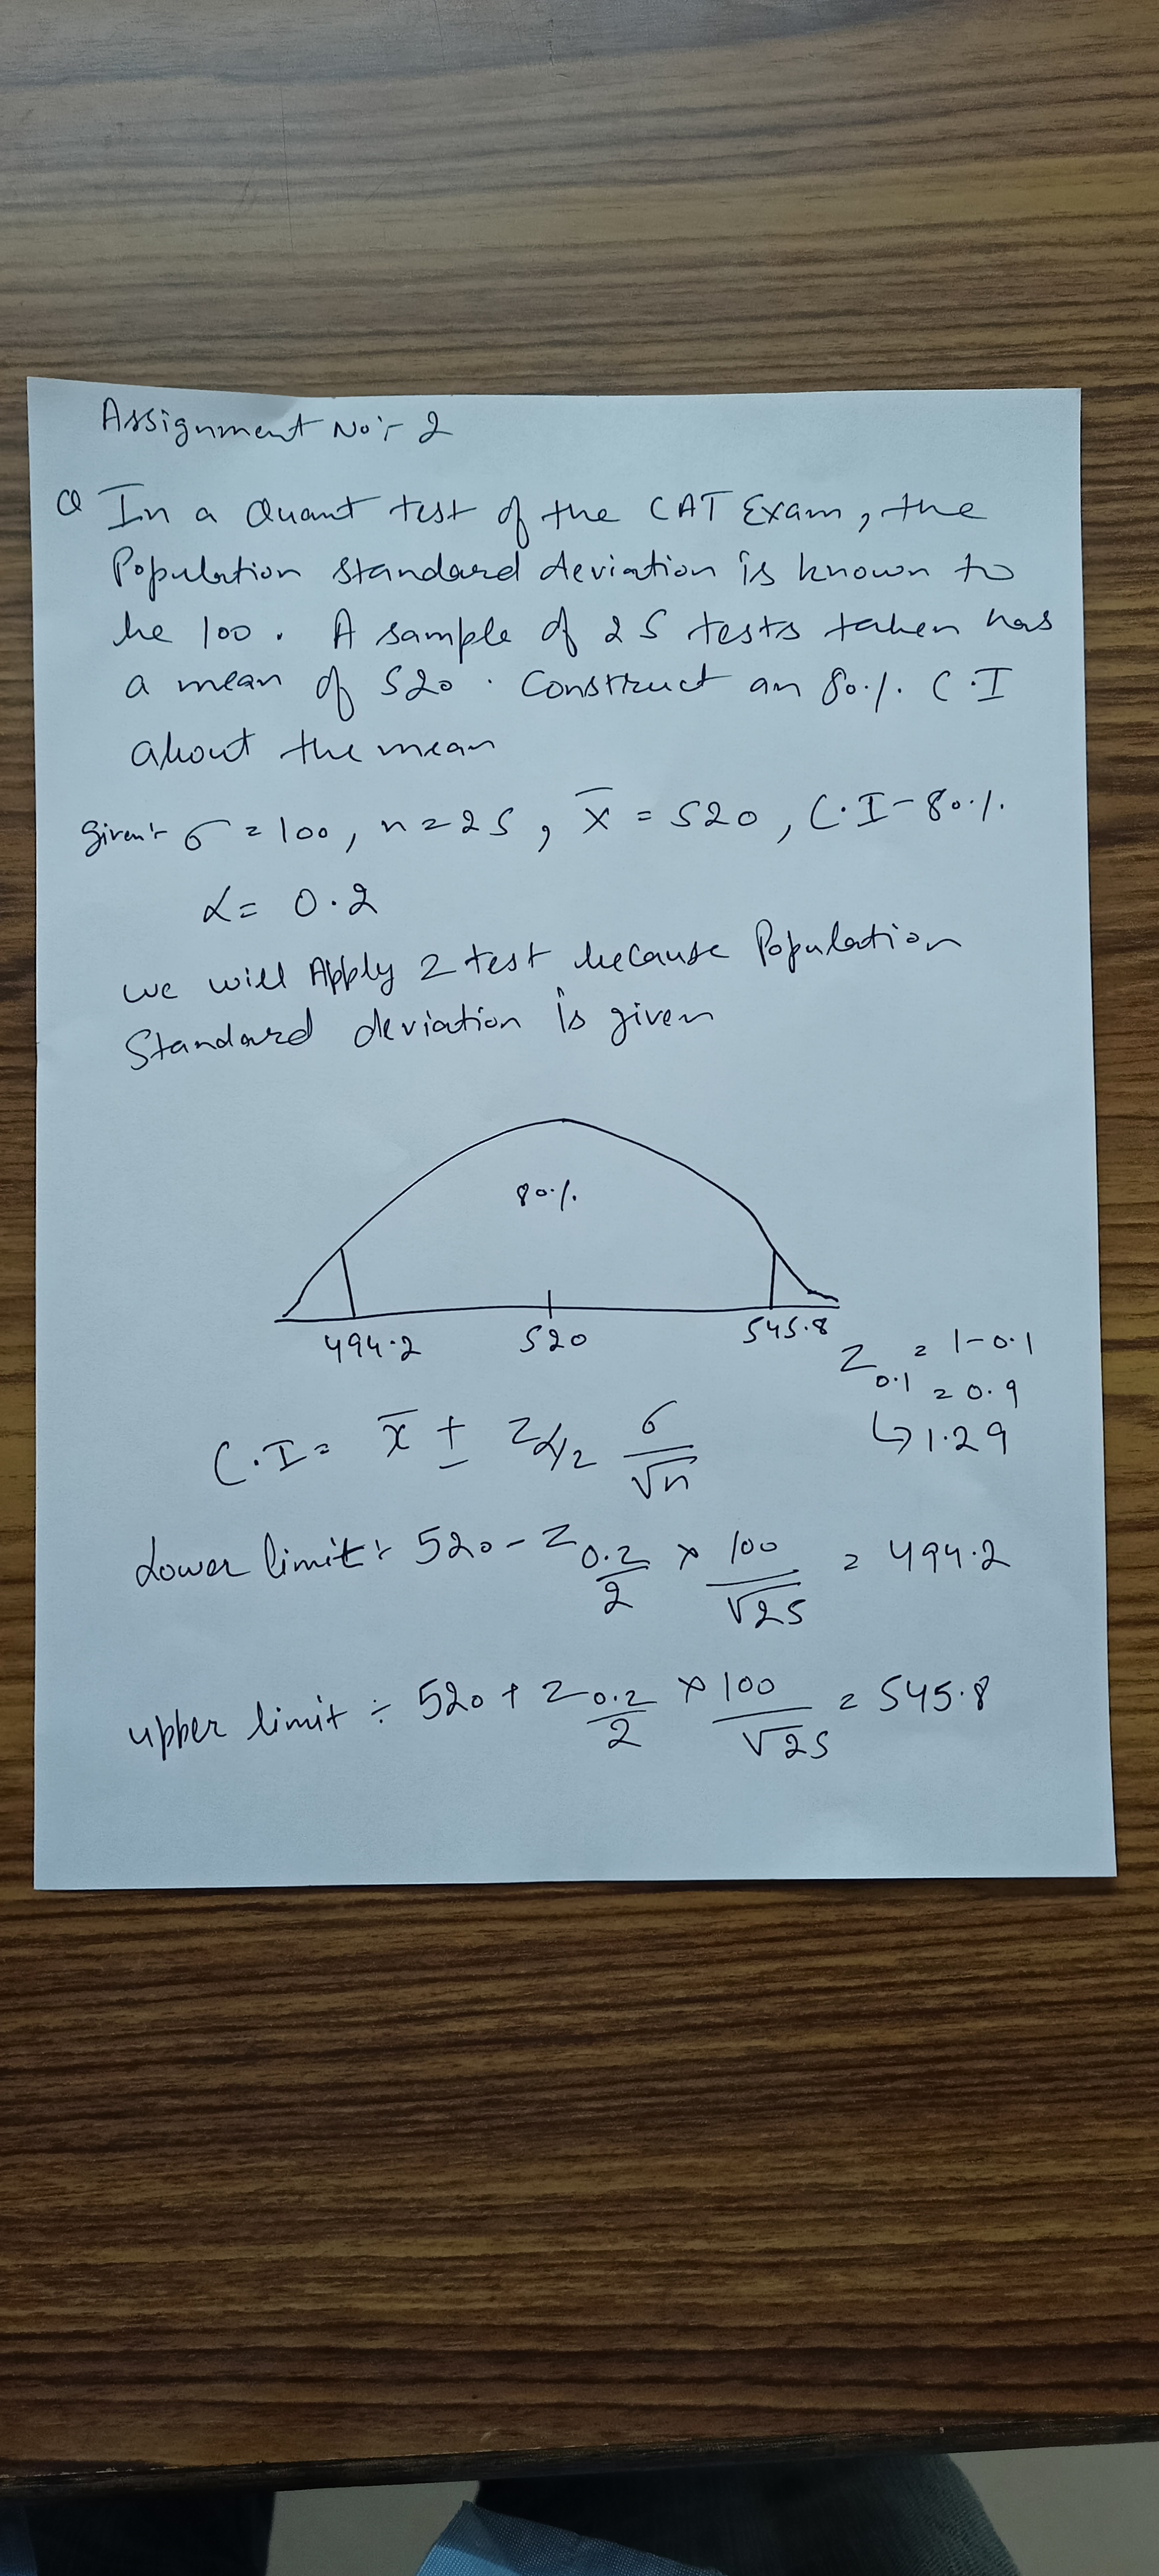 Assignment No:- 2
Q In a Quant test of the CAT Exam, the
Population standard deviation is known to
be 100. A sample of 25 tests taken has
a mean of 520. Construct an 80% C.I
about the mean
Given:- σ = 100, n = 25, x̄ = 520, C.I - 80%
α = 0.2
we will Apply Z test because Population
Standard deviation is given
80%
494.2 520 545.8
Z0.1 = 1-0.1
= 0.9
↳ 1.29
C.I = x̄ ± Zα/2 σ/√n
Lower limit:- 520 - Z0.2/2 × 100/√25 = 494.2
upper limit ÷ 520 + Z0.2/2 × 100/√25 = 545.8